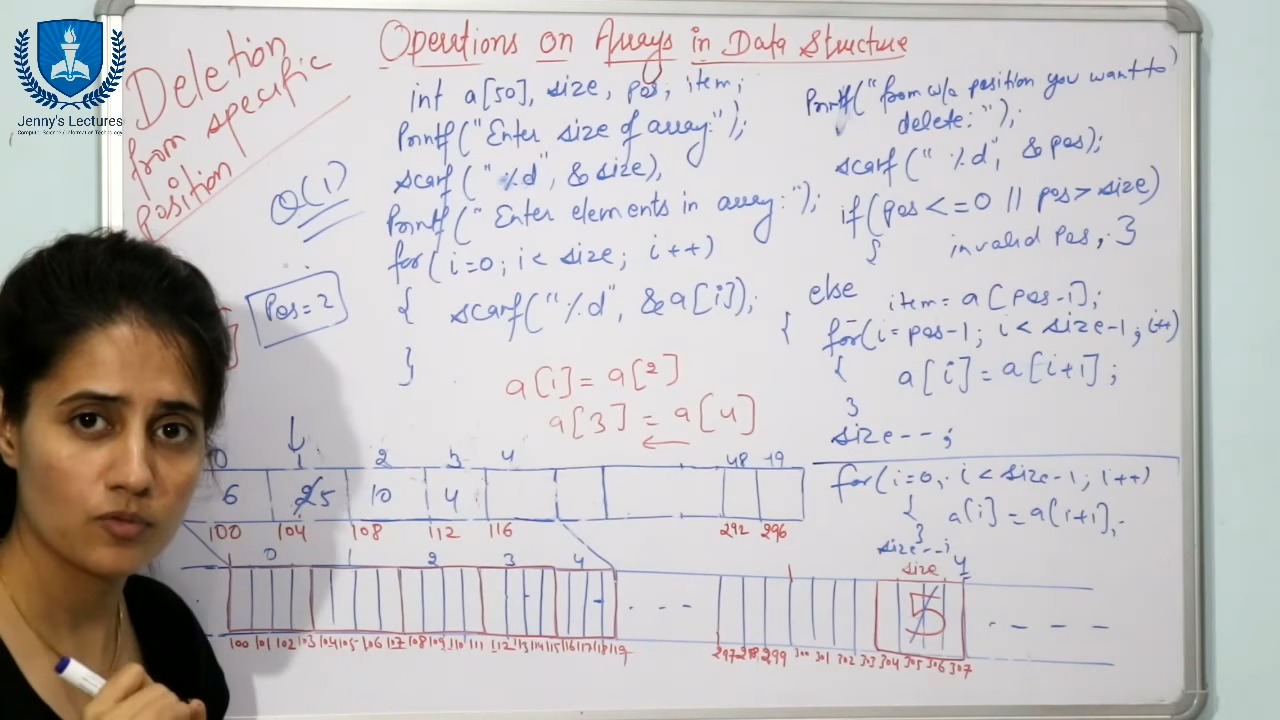 Jenny's Lectures
Computer Science/Information Technology
Operations on Arrays in Data Structure
Deletion
from specific
position
O(1)
Pos=2
int a[50], size, pos, item;
Printf("Enter size of array:");
scanf("%d", &size),
Printf("Enter elements in array:");
for(i=0; i< size; i++)
{ scanf("%d", &a[i]);
}
a[1]=a[2]
a[3] = a[4]
Printf("from w/c position you want to
delete:");
scanf("%d", &pos);
if(pos<=0 || pos>size)
{ invalid pos, }
else
item=a[pos-1];
{ for(i=pos-1; i<size-1; i++)
{ a[i]=a[i+1];
}
size--;
for(i=0, i<size-1; i++)
{ a[i]=a[i+1],
}
size--;
0 1 2 3 4 48 49
6 2 5 10 4
100 104 108 112 116 292 296
0 1 2 3 4 size 4
5
100 101 102 103 104 105 106 107 108 109 110 111 112 113 114 115 116 117 118 119 297 298 299 300 301 302 303 304 305 306 307